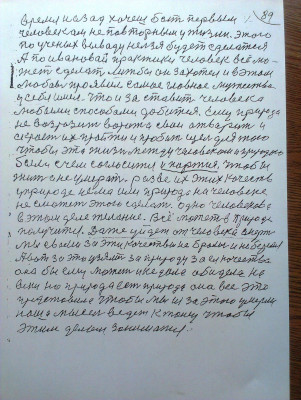 89
время назад хочет быть первым
человекам неповторным у жизни. Этого
по ученых вываду нельзя будет сделатся
А по ивановай практики человек всё мо-
жет сделать. лишь бы он захотел и в этом
любовь проявил самое главное мужество
у себя имел. Что и заставит человека
любыми способами добится. Ему природа
не возразит ворота свои отварат и
скажет их пройти и
чтобы эта жизнь между человеком и природою
была с чем согласится у партия. чтобы
жить а не умерать. разве их этих качеств
у природе нема или природа на человека
не сможет этого сделать. одно человекова
в этом деле желание. Всё может в природе
получится. Даже уйдет от человека
мы с вами за эти качества не брали и не берем
А вот за это взяли за природу за ея качества
она бы ему может и не дала обиделась на
веки но природа вот природа она все это
приготовила чтобы мы из за этого умерли
наша мысля ведет к тому чтобы
этим делом занимались.